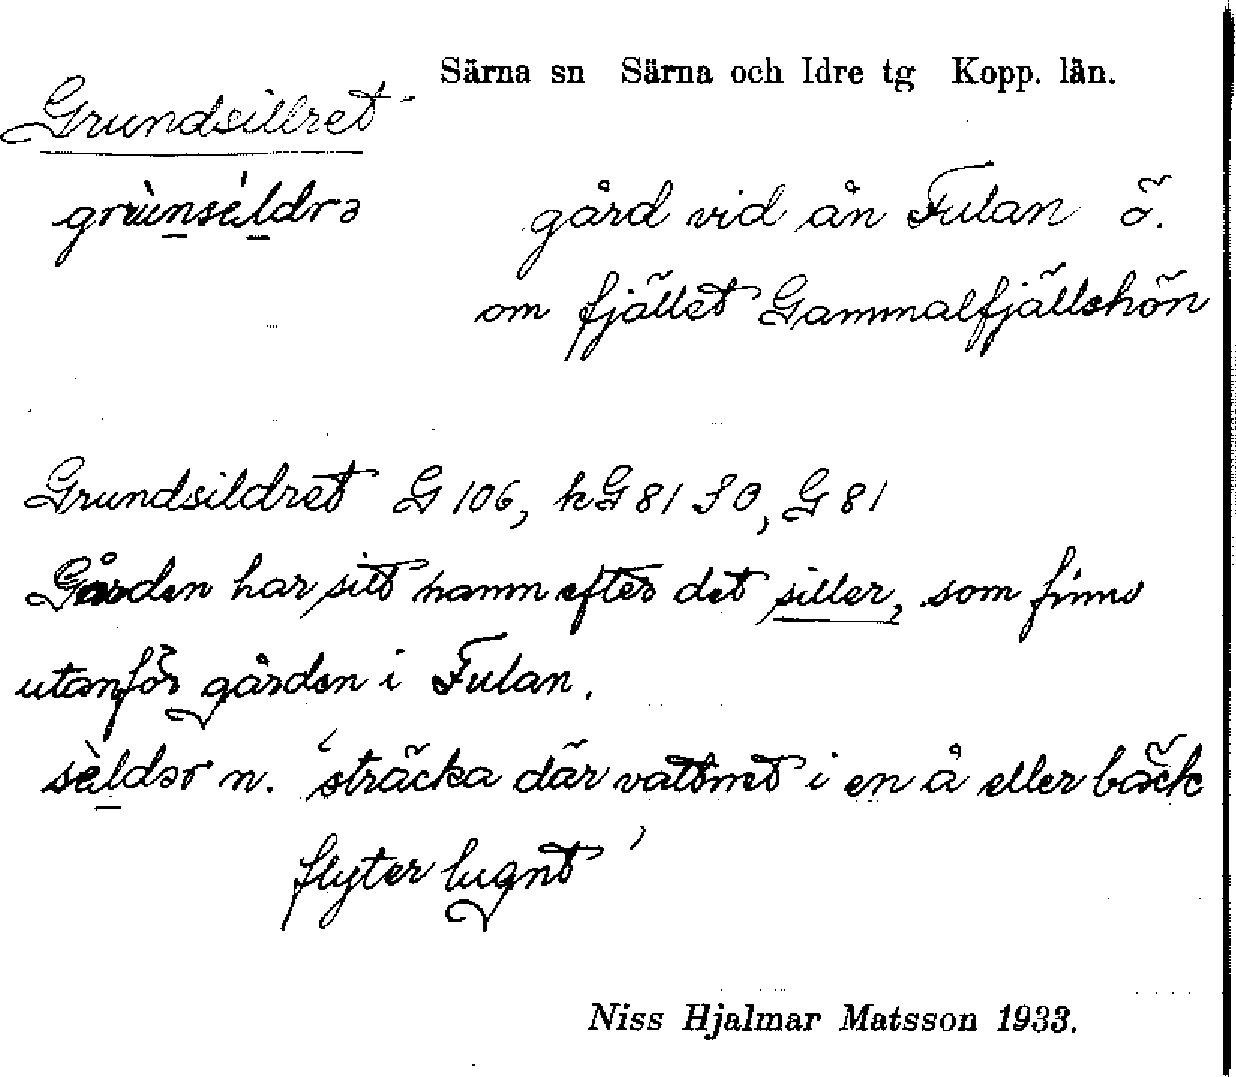 Särna sn Särna och Idre tg Kopp. län.
Grundsillret
grùnséldrə gård vid ån Fulan ö.
om fjället Gammalfjällshön
Grundsildret G 106, kG 81 SO, G 81
Gården har sitt namn efter det siller, som finns
utanför gården i Fulan.
sèldər n. 'sträcka där vattnet i en å eller bäck
flyter lugnt'
Niss Hjalmar Matsson 1933.